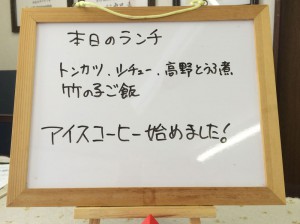 本日のランチ
トンカツ、シチュー、高野とうふ煮
竹の子ご飯
アイスコーヒー始めました!